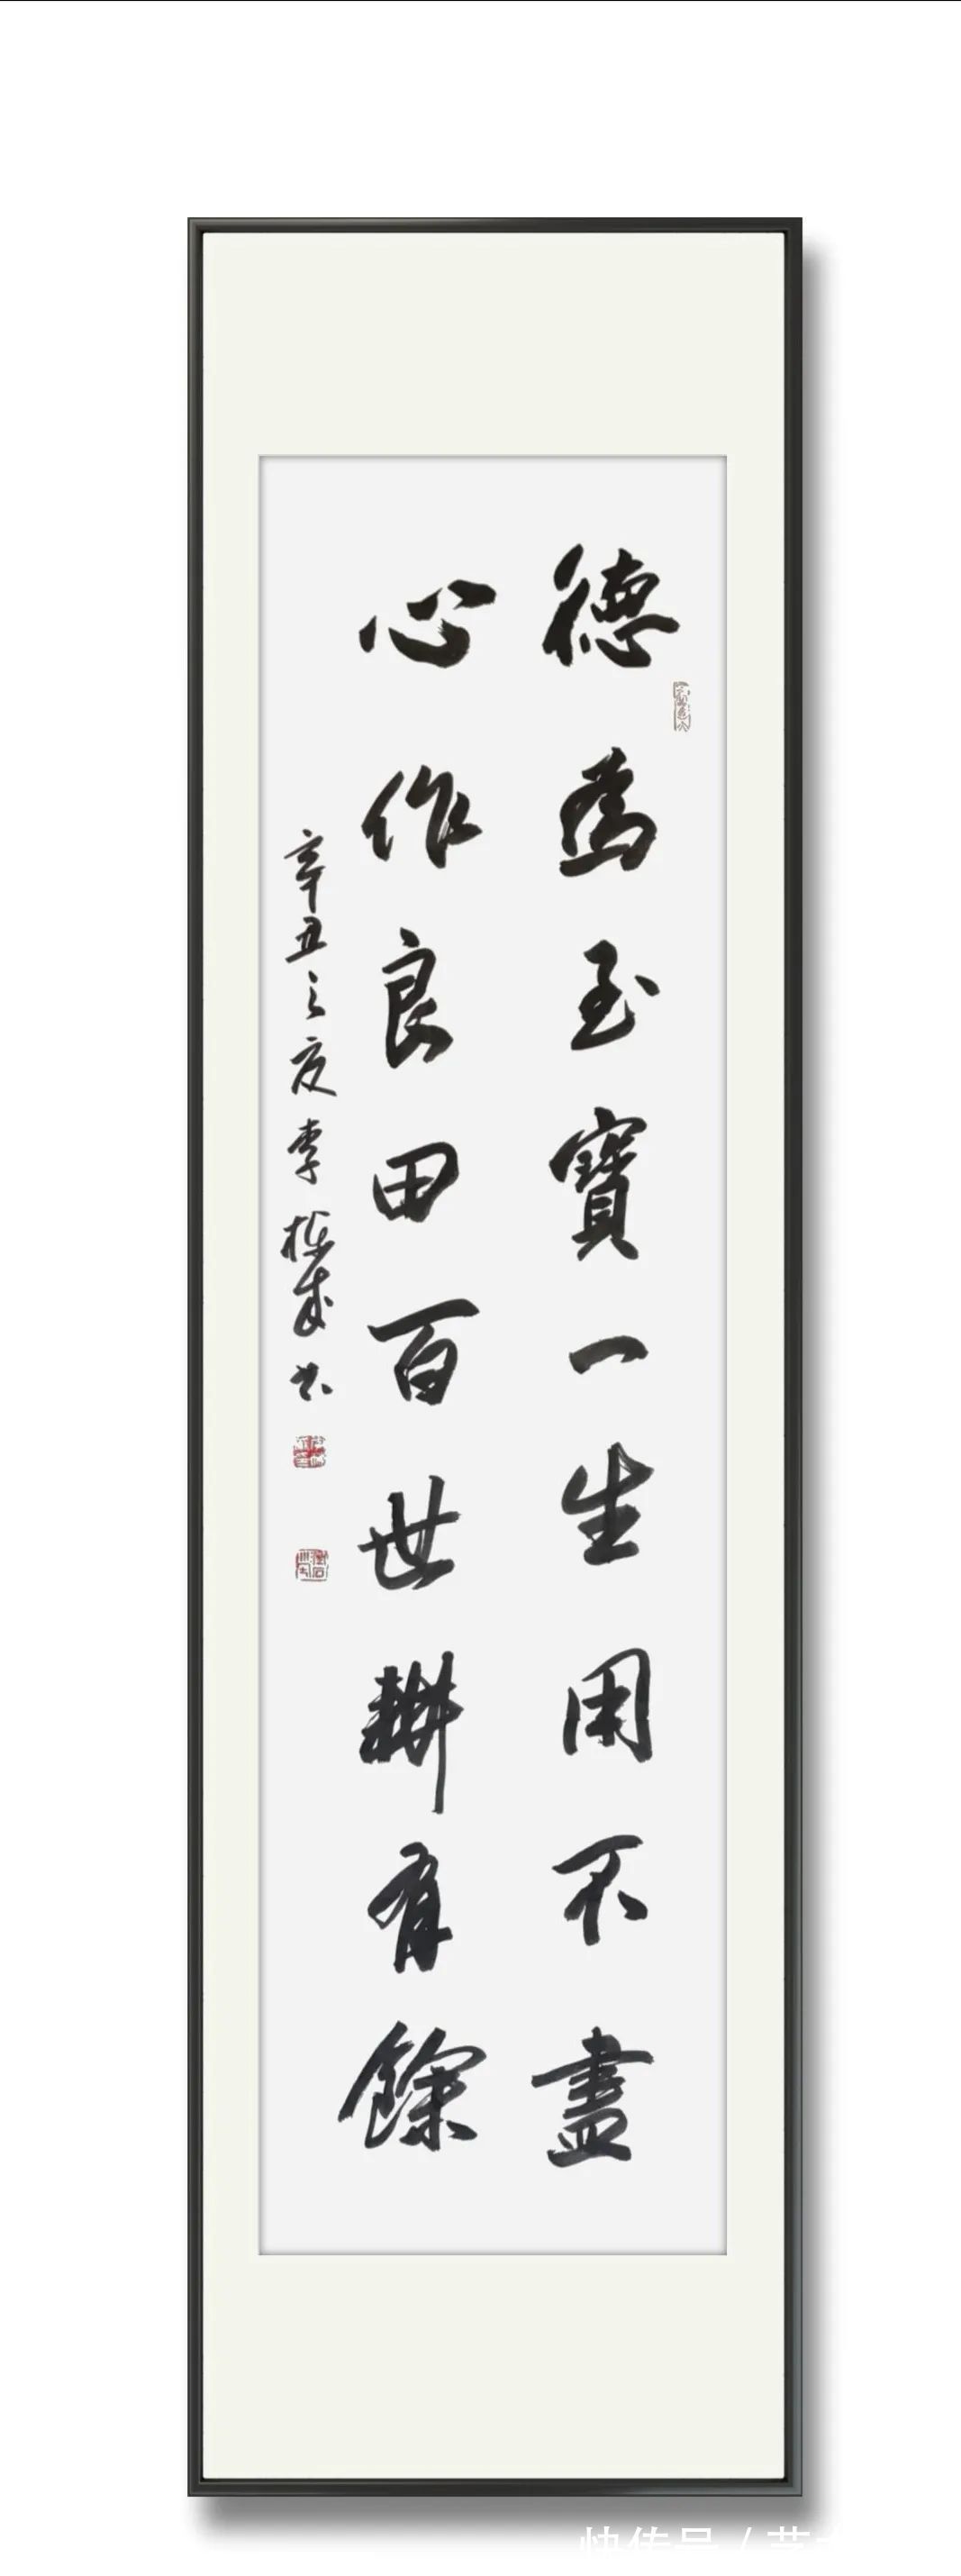 德為至寶一生用不盡
心作良田百世耕有餘
辛丑之夏李棟成书
快传号 / 艺